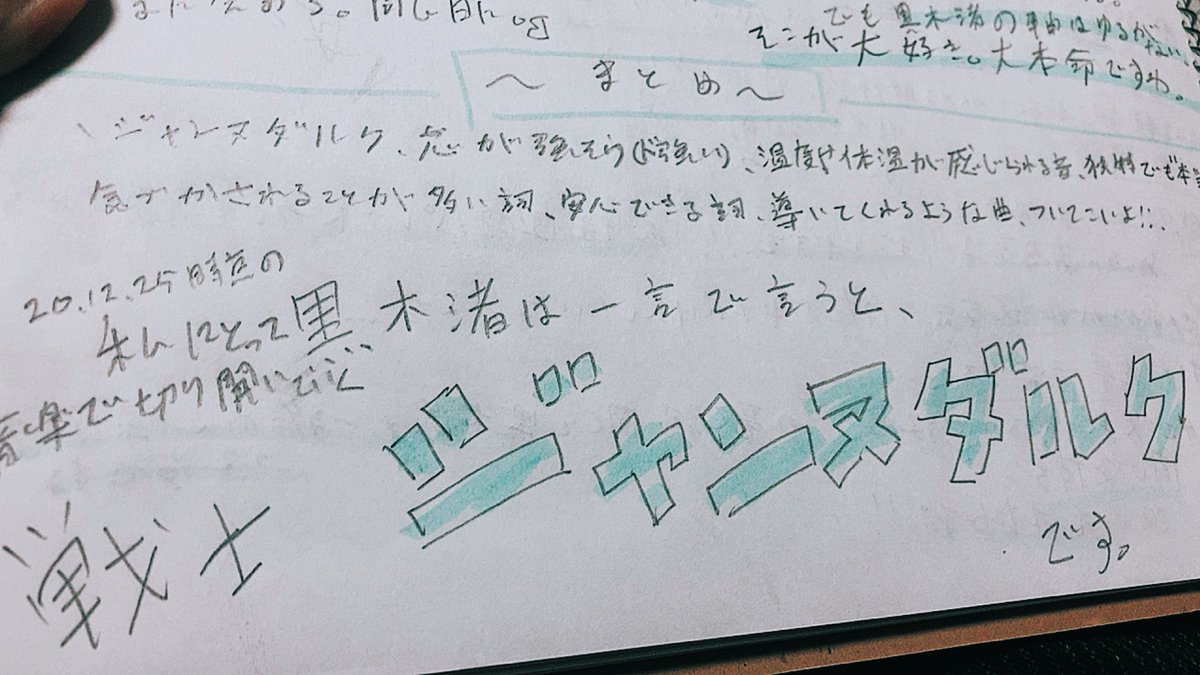 でも黒木渚の軸はゆるがない、
そこが大好き。大本命ですわ。
〜まとめ〜
ジャンヌダルク、芯が強そう(ド強い)、温度や体温が感じられる音、独特でも本
気づかされることが多い詞、安心できる詞、導いてくれるような曲、ついてこいよ!!
20.12.25時点の
私にとって黒木渚は一言で言うと、
音楽で切り開いていく
戦士
ジャンヌダルク
です。